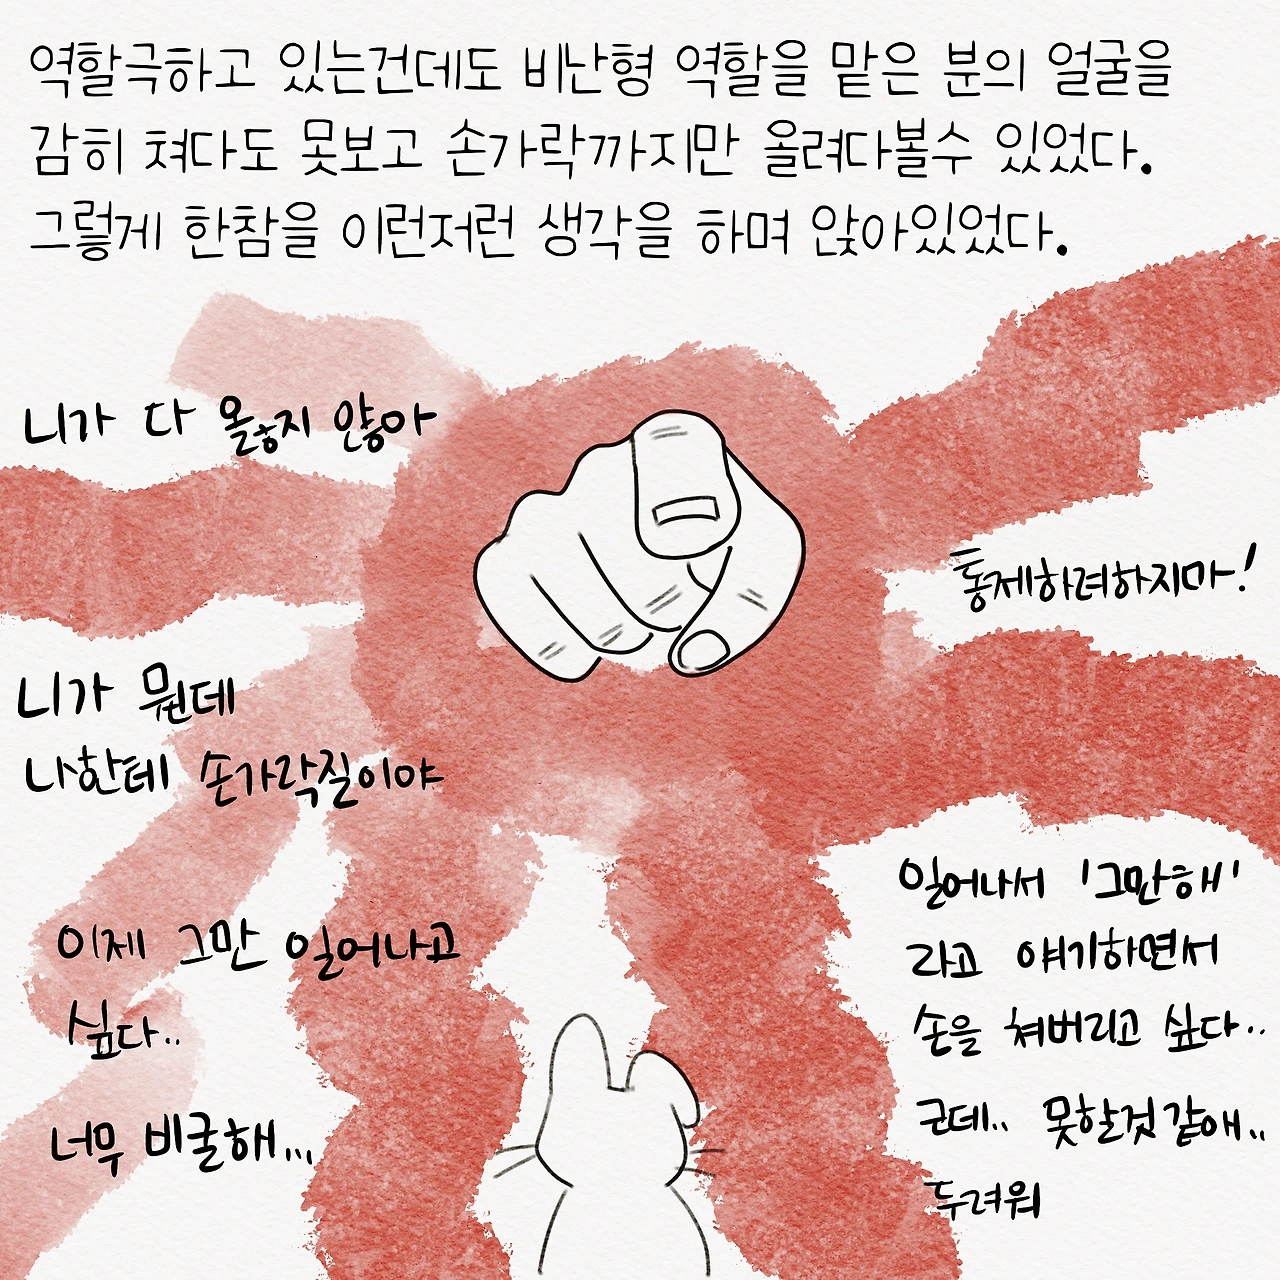 역할극하고 있는건데도 비난형 역할을 맡은 분의 얼굴을
감히 쳐다도 못보고 손가락까지만 올려다볼수 있었다.
그렇게 한참을 이런저런 생각을 하며 앉아있었다.
니가 다 옳지 않아
통제하려하지마!
니가 뭔데
나한테 손가락질이야
이제 그만 일어나고
싶다..
너무 비굴해...
일어나서 '그만해'
라고 얘기하면서
손을 쳐버리고 싶다..
근데.. 못할것 같애..
두려워